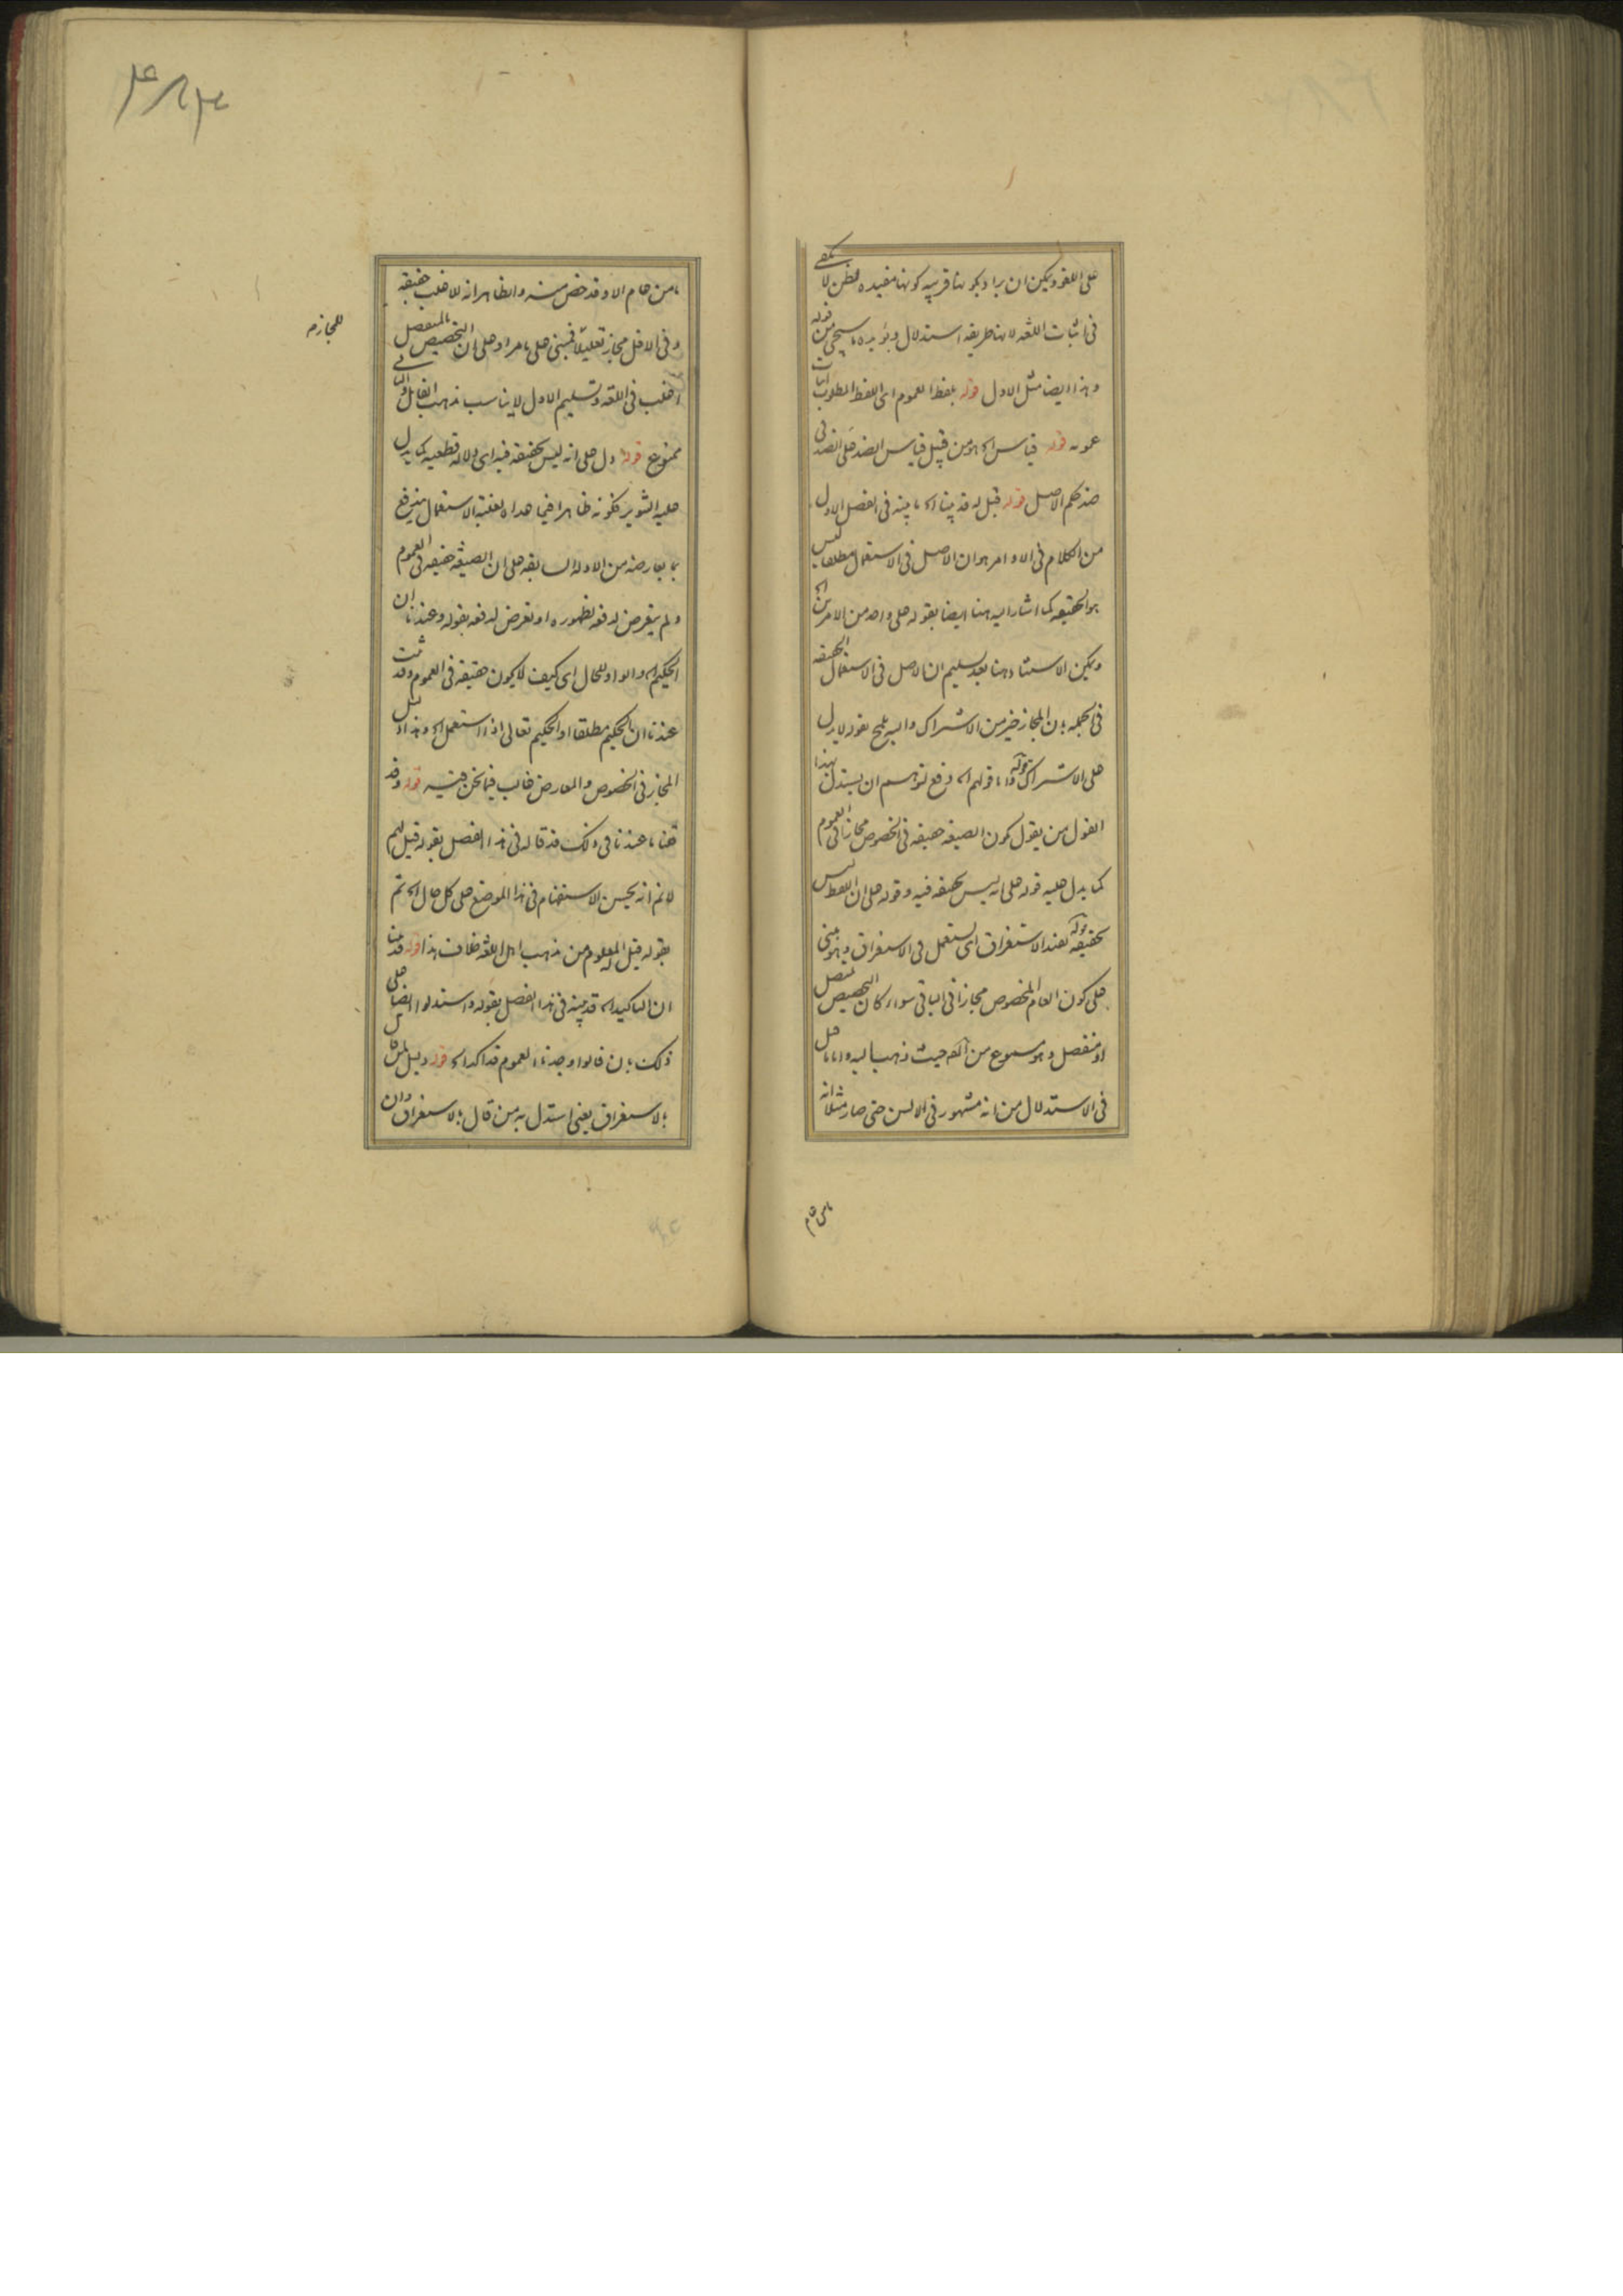 على اللغو ويمكن ان يراد بكونها قريبه كونها مفيده لظن لا يكفى
فى اثبات اللغه لانها طريقه استدلال ويؤيده ما سيجئ من قوله
وهذا ايضا مثل الاول قوله بلفظ العموم اى اللفظ المطلوب اثبات
عمومه قوله قياس اه هو من قبيل قياس الضد على الضد فى
ضد حكم الاصل قوله قيل له قد بينا اه ما بينه فى الفصل الاول
من الكلام فى الاوامر هو ان الاصل فى الاستعمال مطلقا ليس
هو الحقيقه كما اشار اليه هنا ايضا بقوله على واحد من الامرين اه
ويمكن الاستناد هنا بعد تسليم ان الاصل فى الاستعمال الحقيقه
فى الجمله بان المجاز خير من الاشتراك واليه يلمح بقوله لا يدل
على الاشتراك قوله واما قولهم اه دفع توهم ان يستدل بهذا
القول من يقول بكون الصيغه حقيقه فى الخصوص مجازا فى العموم
كما يدل عليه قوله على انه ليس بحقيقه فيه وقوله على ان اللفظ ليس
بحقيقه قوله يفيد الاستغراق اى يستعمل فى الاستغراق وهو مبنى
على كون العام المخصوص مجازا فى الباقى سواء كان التخصيص بمتصل
او منفصل وهو مسموع من المصنف حيث ذهب اليه واما ما قيل
فى الاستدلال من انه مشهور فى الالسن حتى صار مثلا انه
ما من عام
ما من عام الا وقد خص منه والظاهر انه للاغلب حقيقه
وفى الاقل مجاز تقليلا فمبنى على ما مر او على ان التخصيص بالمنفصل
للمجاز م
اغلب فى اللغه وتسليم الاول لا يناسب مذهب القائل والثانى
ممنوع قوله دل على انه ليس بحقيقه فيه اى دلاله قطعيه كما يدل
عليه التنوير بكونه ظاهرا فيما عداه لغلبة الاستعمال فيندفع
بما يعارضه من الادله السابقه على ان الصيغه حقيقه فى العموم
ولم يتعرض لدفعه لظهوره او تعرض لدفعه بقوله وعندنا ان
الحكيم اه والواو للحال اى كيف لا يكون حقيقه فى العموم وقد ثبت
عندنا ان الحكيم مطلقا او الحكيم تعالى اذا استعمل اه وهذا دليل
المجاز فى الخصوص والمعارض غالب فيما نحن فيه قوله وقد
قلنا ما عندنا فى ذلك قد قاله فى هذا الفصل بقوله قيل لهم
لا نم انه يحسن الاستفهام فى هذا الموضع على كل حال اه ثم
بقوله قيل له المعلوم من مذهب اهل اللغه خلاف هذا قوله قد بينا
ان التاكيد اه قد بينه فى هذا الفصل بقوله واستدلوا ايضا على
ذلك بان قالوا وجدنا العموم قد اكد اه قوله دليل لمن قال
بالاستغراق يعنى استدل به من قال بالاستغراق وان